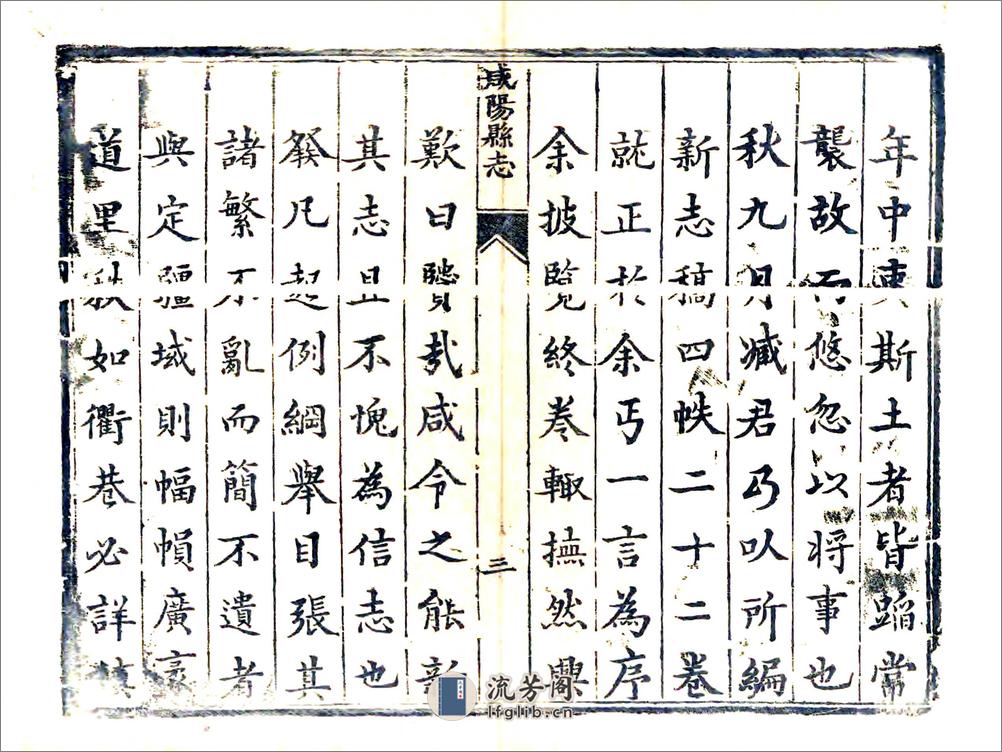 年中吏斯土者皆蹈常
襲故而悠忽以將事也
秋九月臧君乃以所編
新志稿四帙二十二卷
就正於余丐一言為序
余披覽終卷輙撫然興
咸陽縣志
三
歎曰賢哉咸令之能新
其志且不愧為信志也
發凡起例綱舉目張其
諸繁不亂而簡不遺者
與定疆域則幅幀廣袤
道里秩如衢巷必詳
流芳阁
lfglib.cn